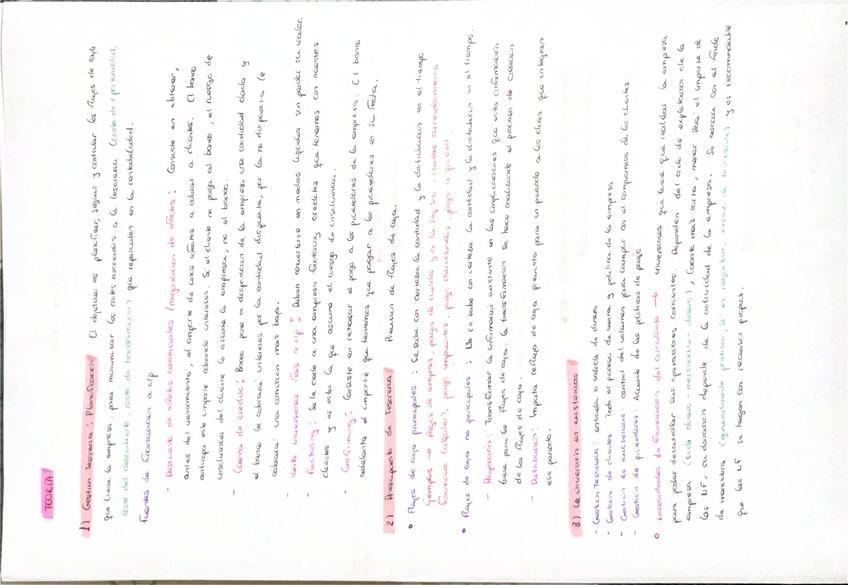 TEORÍA
1) Gestión Tesorería: Planificación El objetivo es planificar, seguir y controlar los flujos de caja
que tiene la empresa para minimizar los costes asociados a la tesorería (coste de oportunidad,
coste del descubierto, coste de transacción) que repercuten en la rentabilidad.
Fuentes de financiación a c/p
- Descuento de efectos comerciales (negociación de efectos): Consiste en obtener,
antes del vencimiento, el importe de unos efectos a cobrar a clientes. El banco
anticipa este importe cobrando intereses. Si el cliente no paga al banco, el riesgo de
insolvencia del cliente lo asume la empresa, no el banco.
- Cuenta de crédito: Banco pone a disposición de la empresa una cantidad dada y
el banco le cobrará intereses por la cantidad dispuesta, por la no dispuesta le
cobrará una comisión más baja.
- Venta inversiones a c/p: Deben convertirse en medios líquidos sin perder su valor.
- Factoring: Se le cede a una empresa factoring créditos que tenemos con nuestros
clientes y es esta la que asume el riesgo de insolvencia.
- Confirming: Consiste en el pago a los proveedores de la empresa. El banco
adelanta el importe que tenemos que pagar a los proveedores en su fecha.
2) Presupuesto de Tesorería Previsión de flujos de caja.
• Flujos de caja principales: Se sabe con certeza la cantidad y la distribución en el tiempo
Ejemplos → pagos de nóminas y a la Seg. Soc., cuotas arrendamiento
financiero (alquiler), pago impuestos, pago dividendos, pago a proveed.
• Flujos de caja no principales: No se sabe con certeza la cantidad y la distribución en el tiempo.
- Proyección: Transformar la información existente en las implicaciones que esta información
tiene para los flujos de caja. La transformación se hace analizando el proceso de creación
de los flujos de caja.
- Distribución: Imputa flujo de caja previsto para un periodo a los días que integran
ese periodo.
3) La inversión en existencias
- Gestión Tesorería: entrada o salida de dinero
- Gestión de clientes: Todo el proceso de venta y política de la empresa
- Gestión de existencias: control del volumen para cumplir con el compromiso de los clientes.
- Gestión de proveedores: Acuerdo de las políticas de pago
• Necesidades de financiación del circulante → inversiones que tiene que realizar la empresa
para poder desarrollar sus operaciones corrientes. Dependen del ciclo de explotación de la
empresa (ciclo dinero - mercancía - dinero), cuanto más corto, menor será el importe de
las NF, su duración depende de la actividad de la empresa. Se asocia con el fondo
de maniobra y es recomendable
que las NF se hagan con recursos propios.